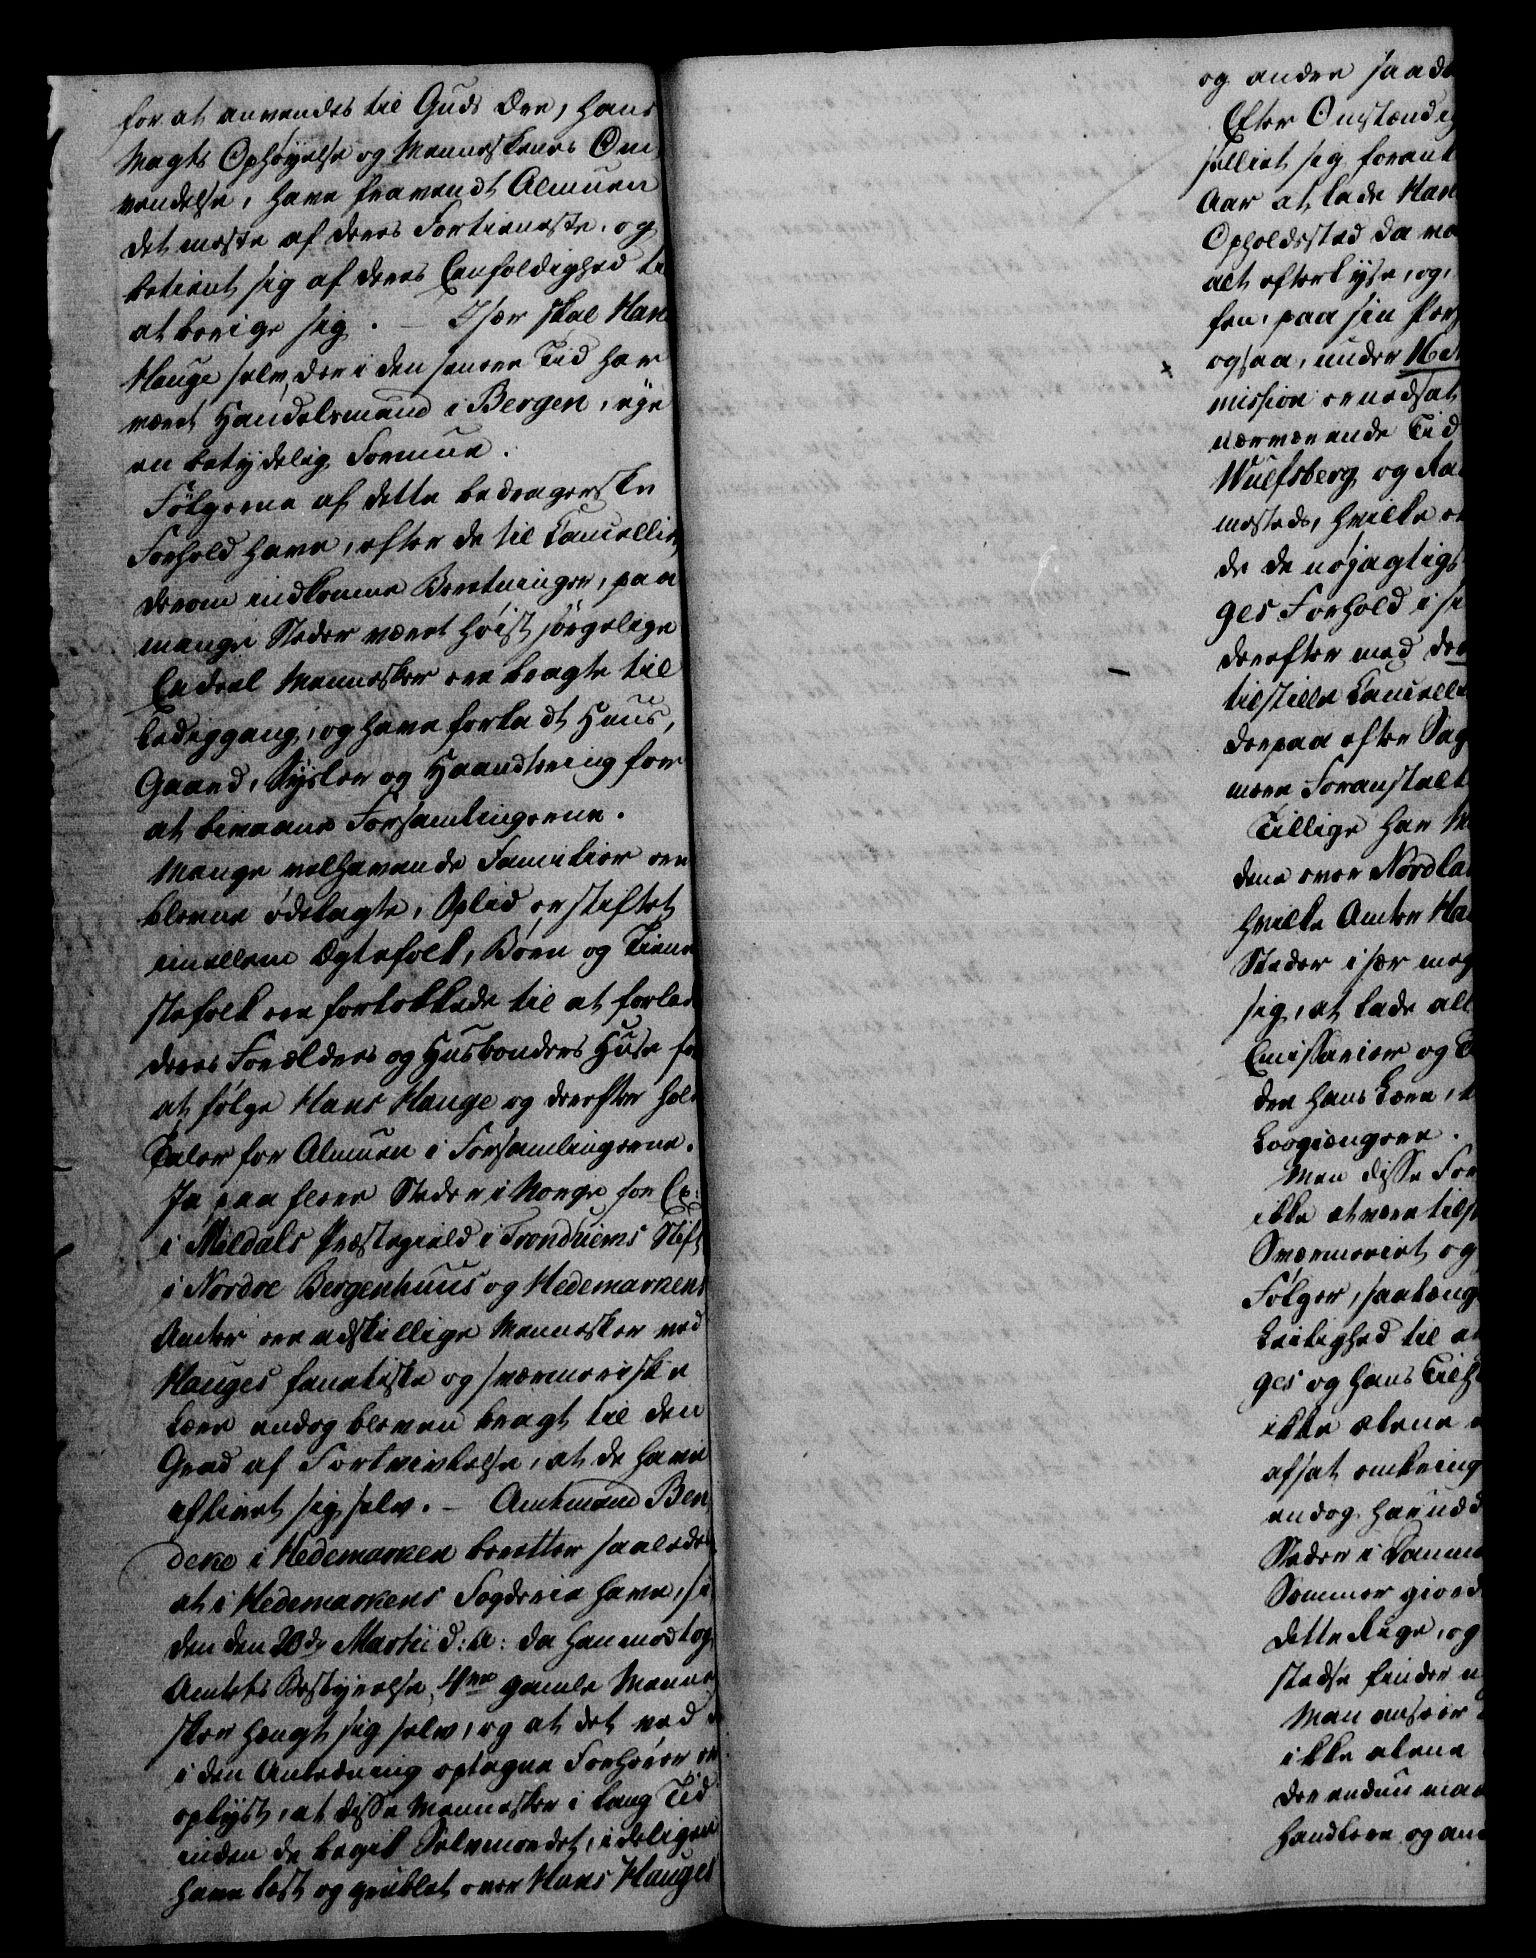 for at anvendes til Guds Ære, hans
Magts Ophøyelse og Menneskenes Om
vendelse, have fravendt Almuen
det meste af deres Fortieneste, og
betient sig af deres Eenfoldighed til
at berige sig. – Især skal Hans
Hauge selv, der i den senere Tid har
været Handelsmand i Bergen, eye
en betydelig Formue.
Følgerne af dette bedragerske
Forhold have, efter de til Cancelliet
derom indkomne Beretninger, paa
mange Steder været høist sørgelige
Endeel Mennesker ere bragte til
Lediggang, og have forladt Huus,
Gaard, Sysler og Haandtering for
at bivaane Forsamlingerne.
Mange velhavende Familier ere
blevne ødelagte, Splid er stiftet
imellem Ægtefolk, Børn og Tiene
stefolk ere forlokkede til at forlade
deres Forældres og Husbonders Huse for
at følge Hans Hauge og derefter hol
Taler for Almuen i Forsamlingerne.
Ja paa flere Steder i Norge for Ex:
i Meldals Præstegield i Trondhiems Stift
i Nordre Bergenhuus og Hedemarkens
Amter ere adskillige Mennesker ved
Hauges fanatiske og sværmeriske
Lære endog bleven bragt til den
Grad af Fortvivlelse, at de have
aflivet sig selv. – Amtmand Ben
deke i Hedemarken beretter saaledes
at i Hedemarkens Fogderie have, si
den den 20de Martii d: A: da han modtog
Amtets Bestyrelse, 4re gamle Menne
sker hengt sig selv, og at det ved de
i den Anledning optagne Forhører er
oplyst, at disse Mennesker i lang Tid
inden de begik Selvmordet, ideligen
have læst og grublet over Hans Hauges
og andre saada
Efter Omstændig
selliet sig foran
Aar at lade Han
Opholdssted da va
alt efterlyse, og,
fen, paa sin Per
ogsaa, under 16de
mission er nedsat
nærværende Tid
Wulfsberg og Raa
mesteds, hvilke er
de de nøjagtigs
ges Forhold i si
derefter med der
tilstille Cancellie
derpaa efter Sag
mere Foranstalt
Tillige har M
dene over Nordla
hvilke Amter Ha
Steder især meg
sig, at lade all
Emissarier og
der hans Lære,
Løsgiængere.
Men disse For
ikke at være tils
Sværmeriet og
Følger, saalæng
Leilighed til a
ges og hans Tilh
ikke alene
afsat omkring
endog herned
Steder i Danma
Sommer giord
dette Rige, og
stedse finder
Man anseer
ikke alene
der endnu maa
Handlere og an